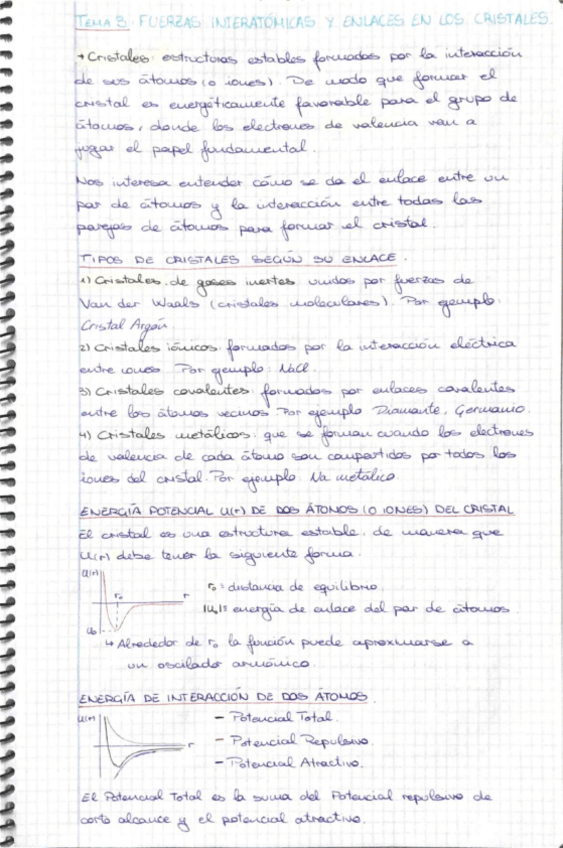 TEMA 3. FUERZAS INTERATÓMICAS Y ENLACES EN LOS CRISTALES.
→ Cristales: estructuras estables formadas por la interacción
de sus átomos (o iones). De modo que formar el
cristal es energéticamente favorable para el grupo de
átomos, donde los electrones de valencia van a
jugar el papel fundamental.
Nos interesa entender cómo se da el enlace entre un
par de átomos y la interacción entre todas las
parejas de átomos para formar el cristal.
TIPOS DE CRISTALES SEGÚN SU ENLACE.
1) Cristales de gases inertes unidos por fuerzas de
Van der Waals (cristales moleculares). Por ejemplo:
Cristal Argón.
2) Cristales iónicos: formados por la interacción eléctrica
entre iones. Por ejemplo: NaCl.
3) Cristales covalentes: formados por enlaces covalentes
entre los átomos vecinos. Por ejemplo Diamante, Germanio.
4) Cristales metálicos: que se forman cuando los electrones
de valencia de cada átomo son compartidos por todos los
iones del cristal. Por ejemplo: Na metálico.
ENERGÍA POTENCIAL U(r) DE DOS ÁTOMOS (O IONES) DEL CRISTAL
El cristal es una estructura estable, de manera que
U(r) debe tener la siguiente forma.
U(r)
r₀
r
U₀
r₀ = distancia de equilibrio.
|U₀| = energía de enlace del par de átomos.
↳ Alrededor de r₀ la función puede aproximarse a
un oscilador armónico.
ENERGÍA DE INTERACCIÓN DE DOS ÁTOMOS.
U(r)
r
- Potencial Total.
- Potencial Repulsivo.
- Potencial Atractivo.
El Potencial Total es la suma del Potencial repulsivo de
corto alcance y el potencial atractivo.